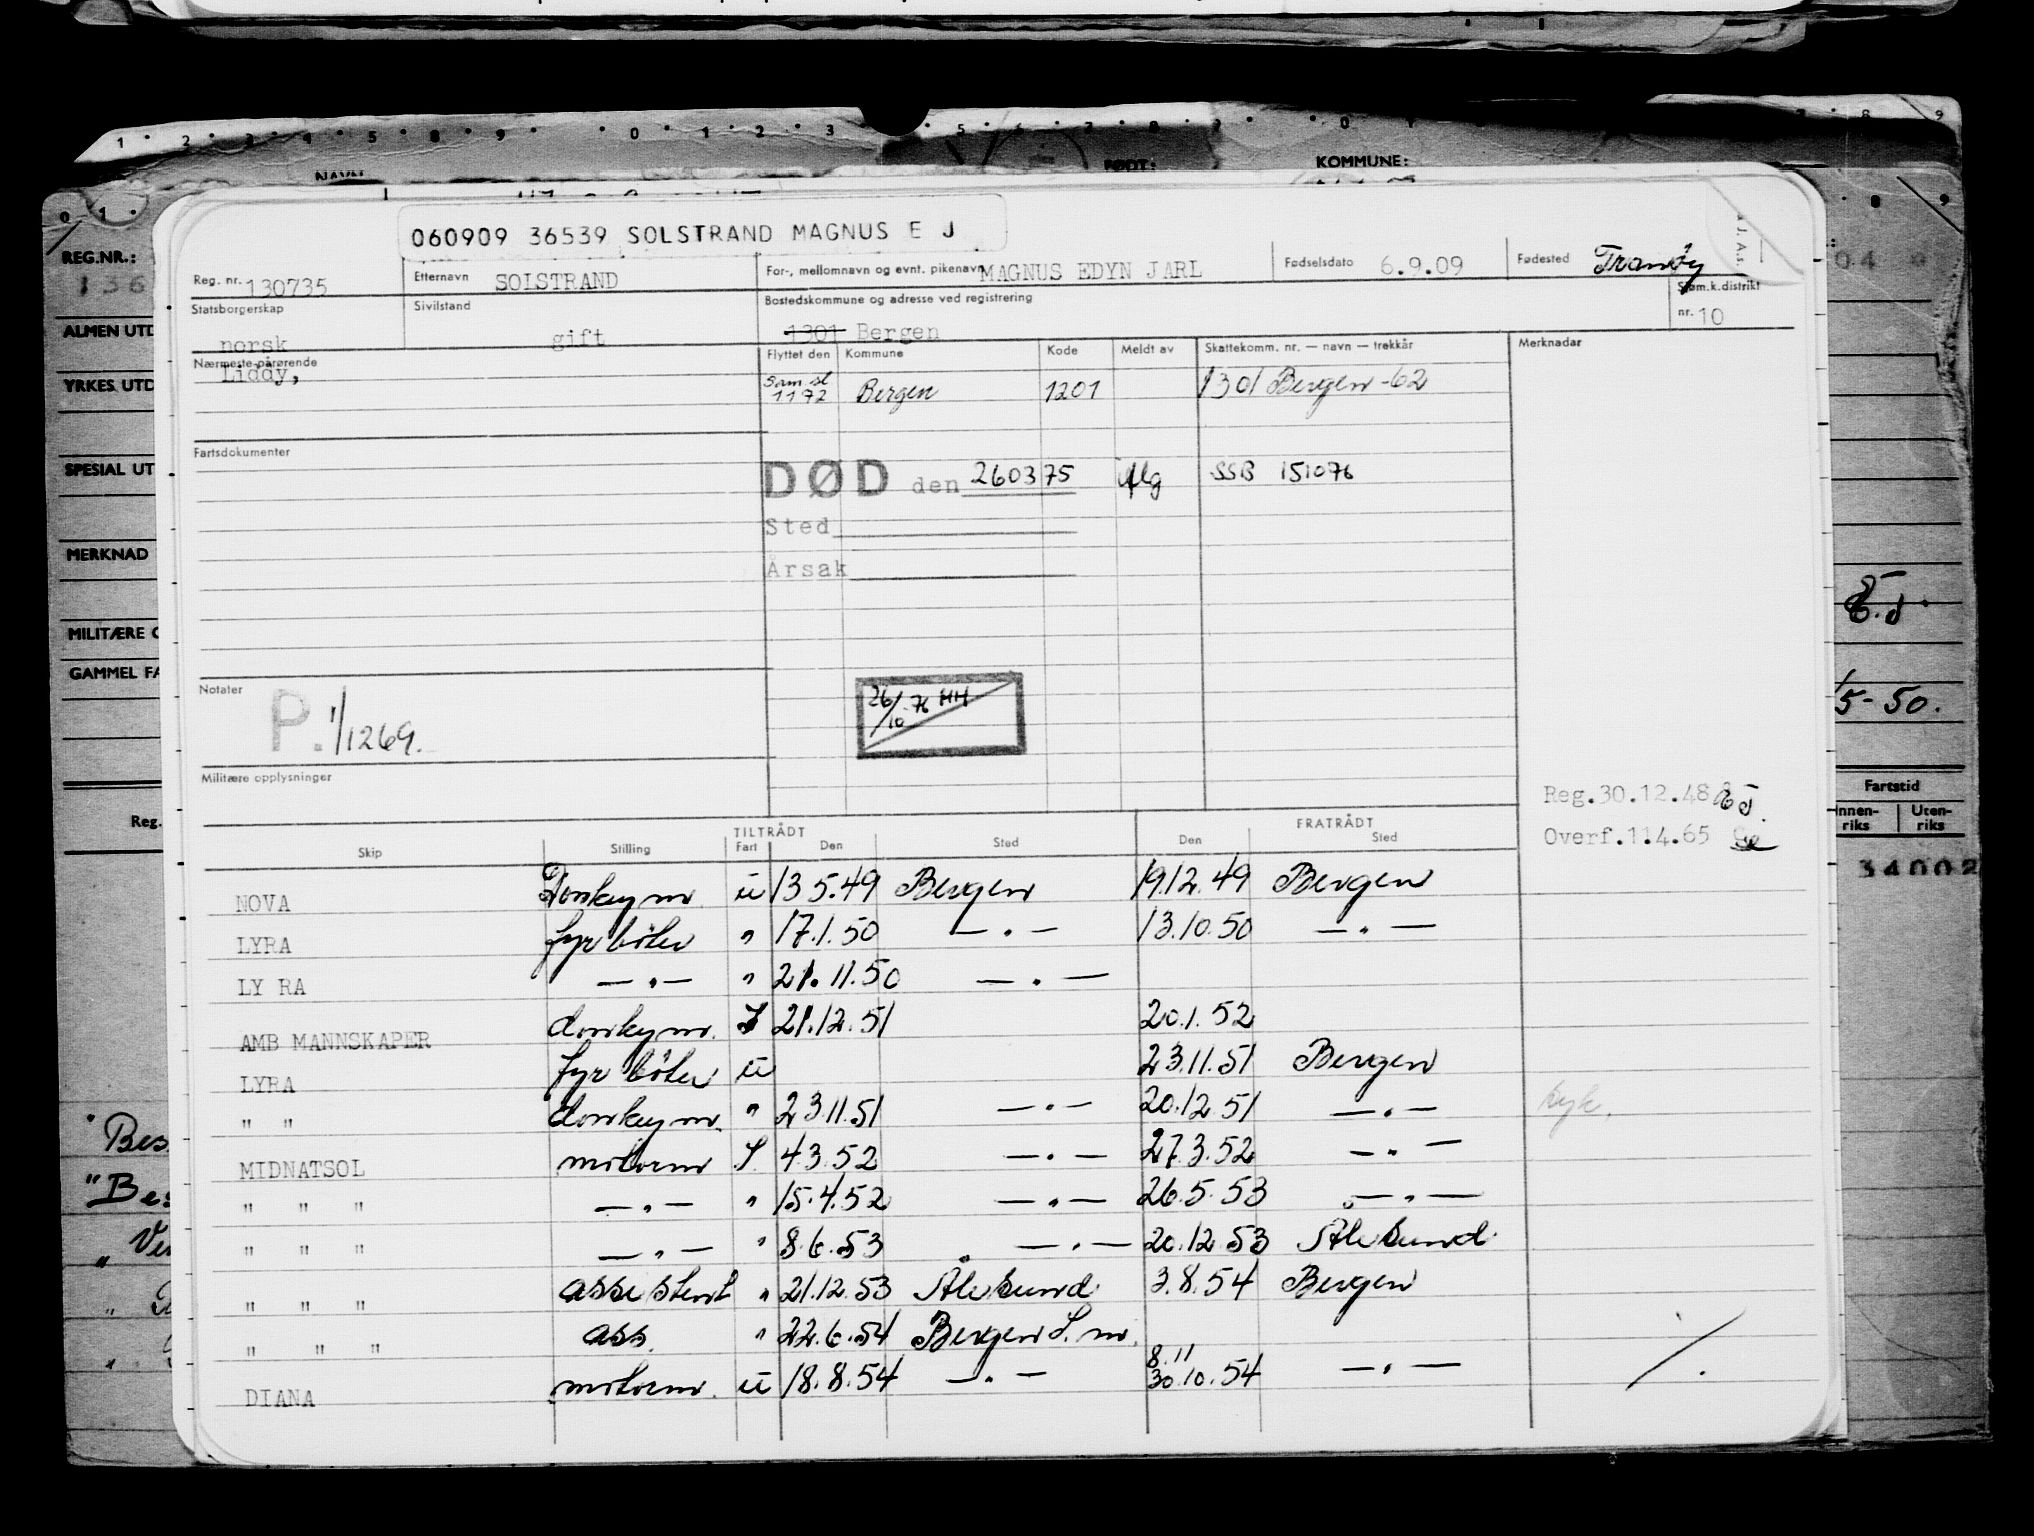 1 2 3 4 5 8 9 0 1 2 3 5 6 7 8 9 0
NAVN
FØDT:
KOMMUNE:
060909 36539 SOLSTRAND MAGNUS E J
Reg. nr. 130735 Etternavn SOLSTRAND For-, mellomnavn og evnt. pikenavn MAGNUS EDYN JARL Fødselsdato 6.9.09 Fødested Tranöy
Statsborgerskap norsk Sivilstand gift Bostedskommune og adresse ved registrering 1301 Bergen Sjøm.k.distrikt nr. 10
Nærmeste pårørende Liddy, Flyttet den Kommune Kode Meldt av Skattekomm. nr. — navn — trekkår Merknadar
Sam sl 1172 Bergen 1201 1301 Bergen -62
Fartsdokumenter
DØD den 260375 SSB 151076
Sted
Årsak
Notater P. 1/1269.
26/10-76 HH
Militære opplysninger
Reg.30.12.48
Overf.1.4.65
TILTRÅDT FRATRÅDT
Skip Stilling Fart Den Sted Den Sted
NOVA Donkeym. u 13.5.49 Bergen 19.12.49 Bergen
LYRA fyrböter " 17.1.50 — " — 13.10.50 — " —
LY RA — " — " 21.11.50 — " —
AMB MANNSKAPER donkeym. I 21.12.51 20.1.52
LYRA fyrböter u 23.11.51 Bergen
" " donkeym. " 23.11.51 — " — 20.12.51 — " — hyk.
MIDNATSOL motorm I 4.3.52 — " — 27.3.52 — " —
" " " — " — " 15.4.52 — " — 26.5.53 — " —
" " " — " — " 8.6.53 — " — 20.12.53 Ålesund
" " " assistent " 21.12.53 Ålesund 3.8.54 Bergen
" " " ass. " 22.6.54 Bergen I. m.
DIANA motorm. u 18.8.54 — " — 8.11 30.10.54 — " — /.
REG.NR.:
136
ALMEN UTD
YRKES UTD
SPECIAL UT
MERKNAD
MILITÆRE O
GAMMEL FA
Reg.
5-50.
Fartstid
Innen-riks Uten-riks
34002